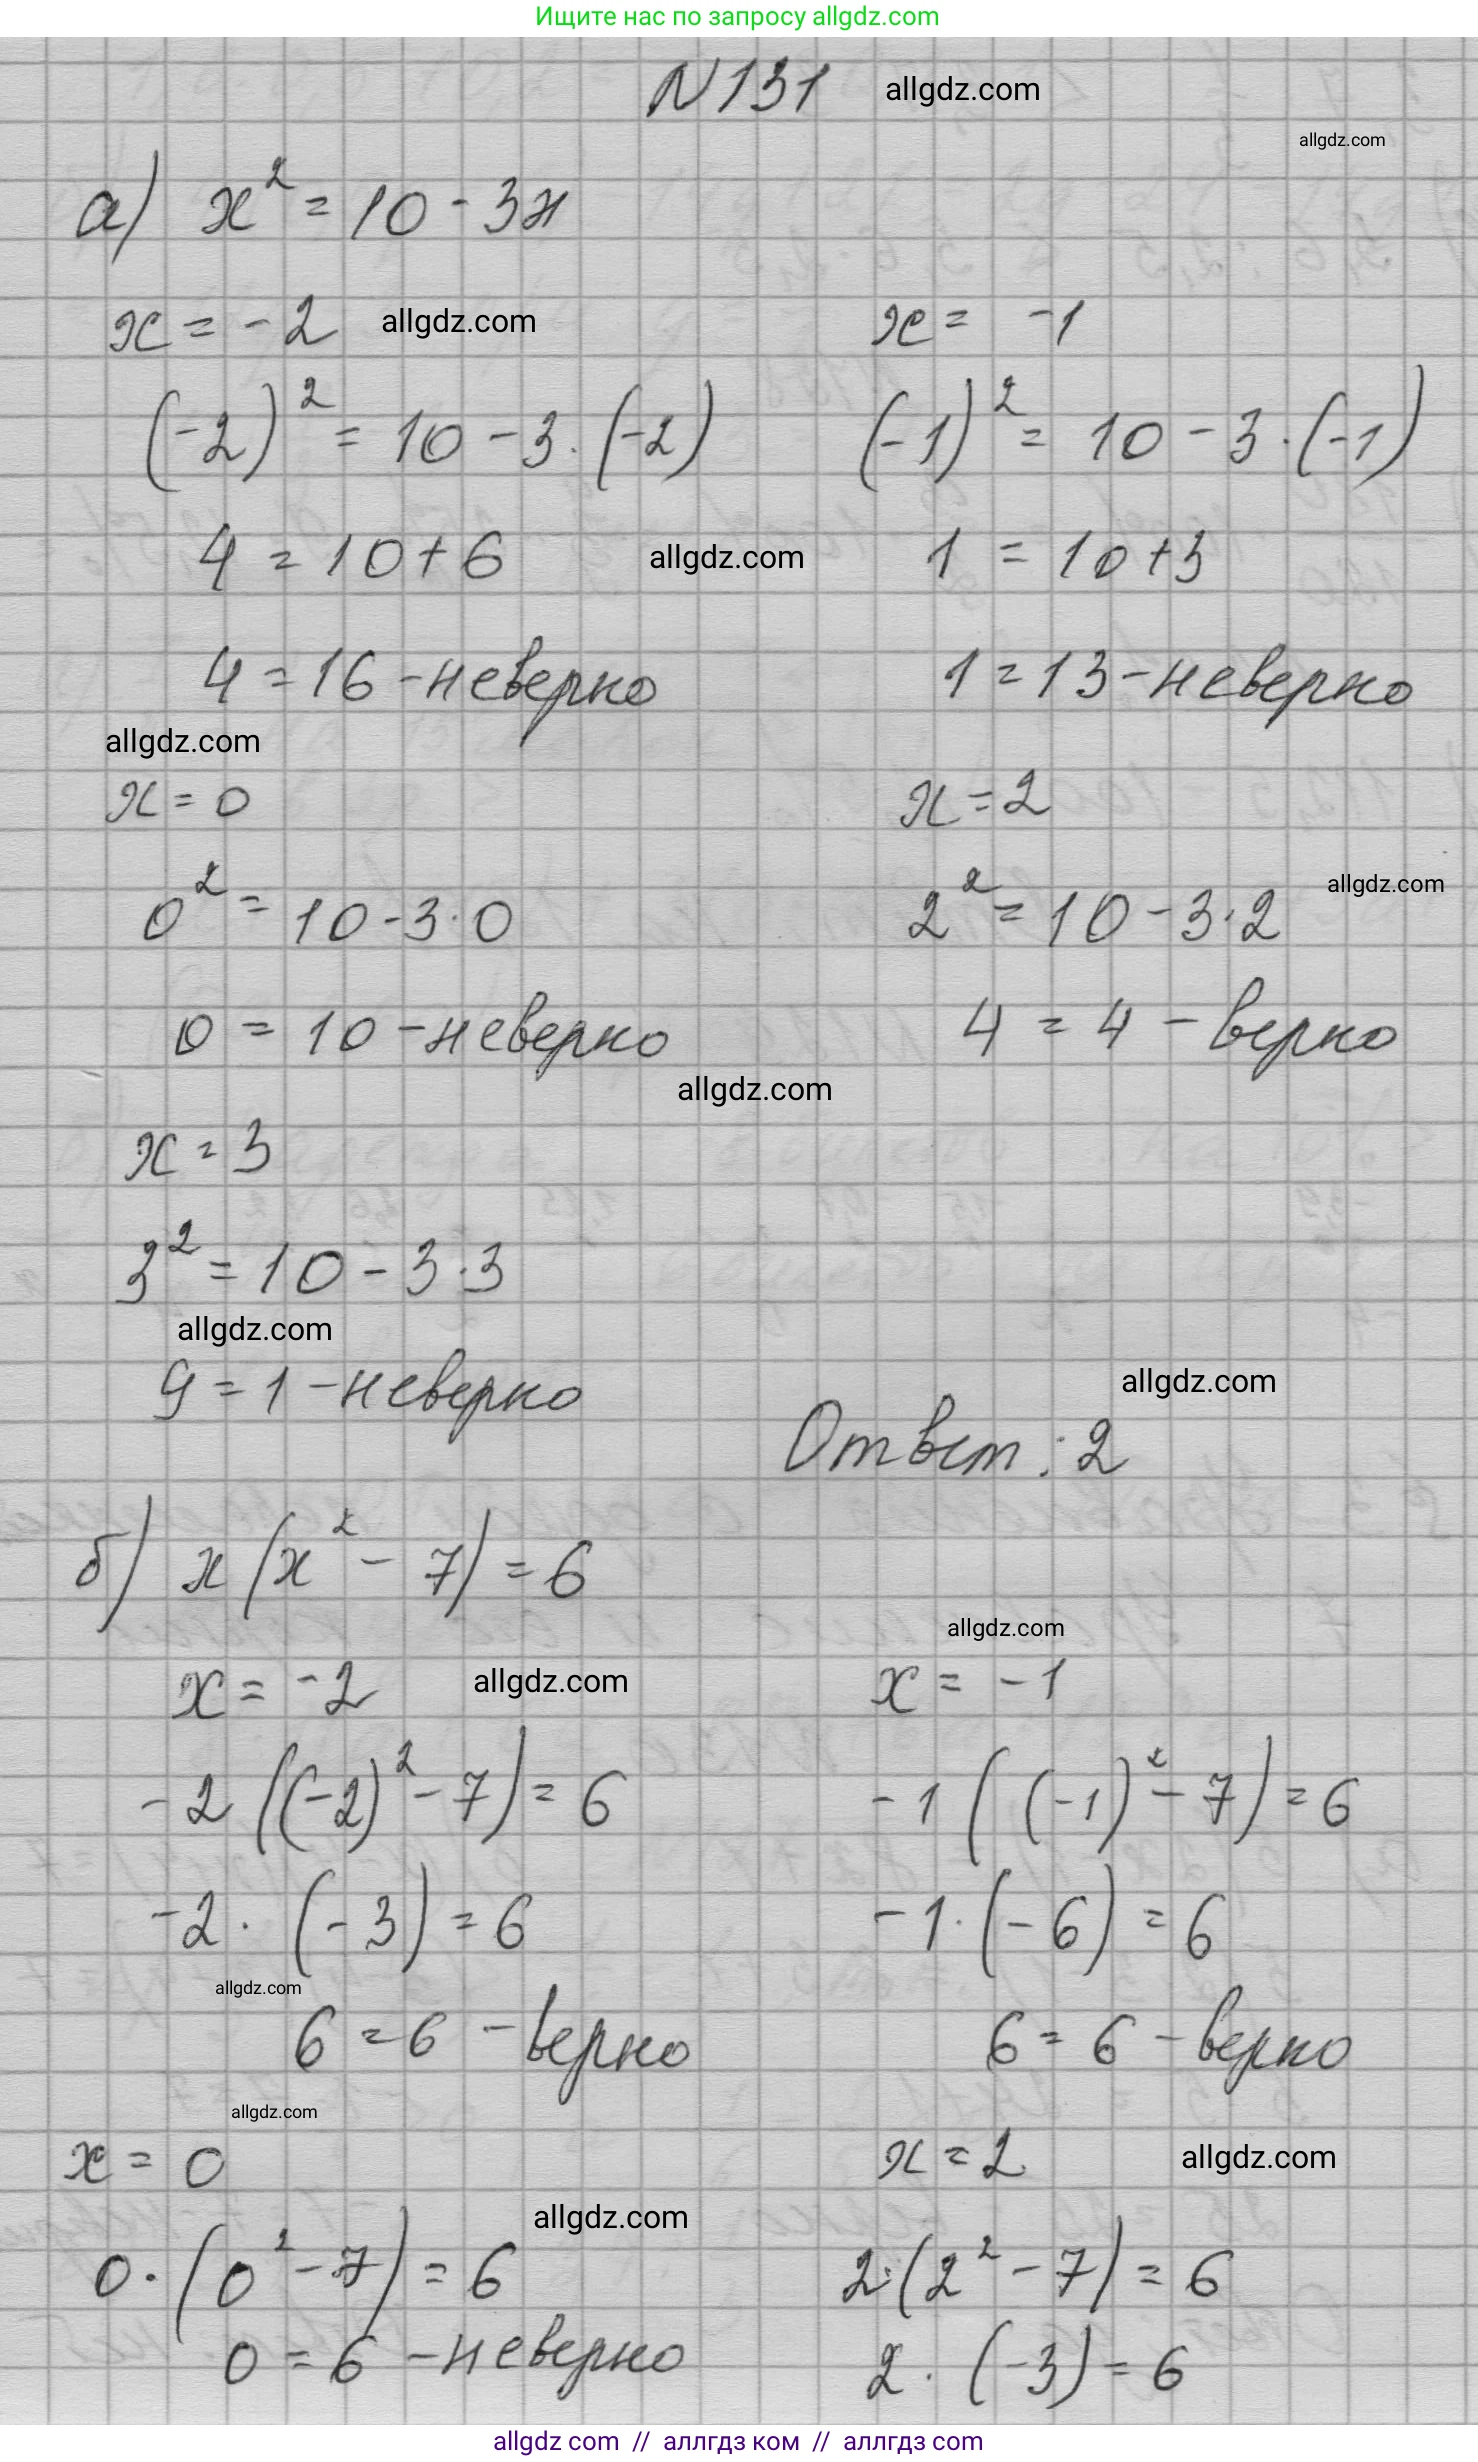 Ищите нас по запросу allgdz.com
N 131 allgdz.com
allgdz.com
а) x² = 10 - 3x
x = -2 allgdz.com x = -1
(-2)² = 10 - 3·(-2) (-1)² = 10 - 3·(-1)
4 = 10 + 6 allgdz.com 1 = 10 + 3
4 = 16 - неверно 1 = 13 - неверно
allgdz.com
x = 0 x = 2
allgdz.com
0² = 10 - 3·0 2² = 10 - 3·2
0 = 10 - неверно 4 = 4 - верно
allgdz.com
x = 3
3² = 10 - 3·3
allgdz.com
9 = 1 - неверно allgdz.com
Ответ: 2
б) x(x² - 7) = 6
allgdz.com
x = -2 allgdz.com x = -1
-2((-2)² - 7) = 6 -1((-1)² - 7) = 6
-2·(-3) = 6 -1·(-6) = 6
allgdz.com
6 = 6 - верно 6 = 6 - верно
allgdz.com
x = 0 x = 2 allgdz.com
allgdz.com
0·(0² - 7) = 6 2·(2² - 7) = 6
0 = 6 - неверно 2·(-3) = 6
allgdz.com // аллгдз ком // аллгдз com